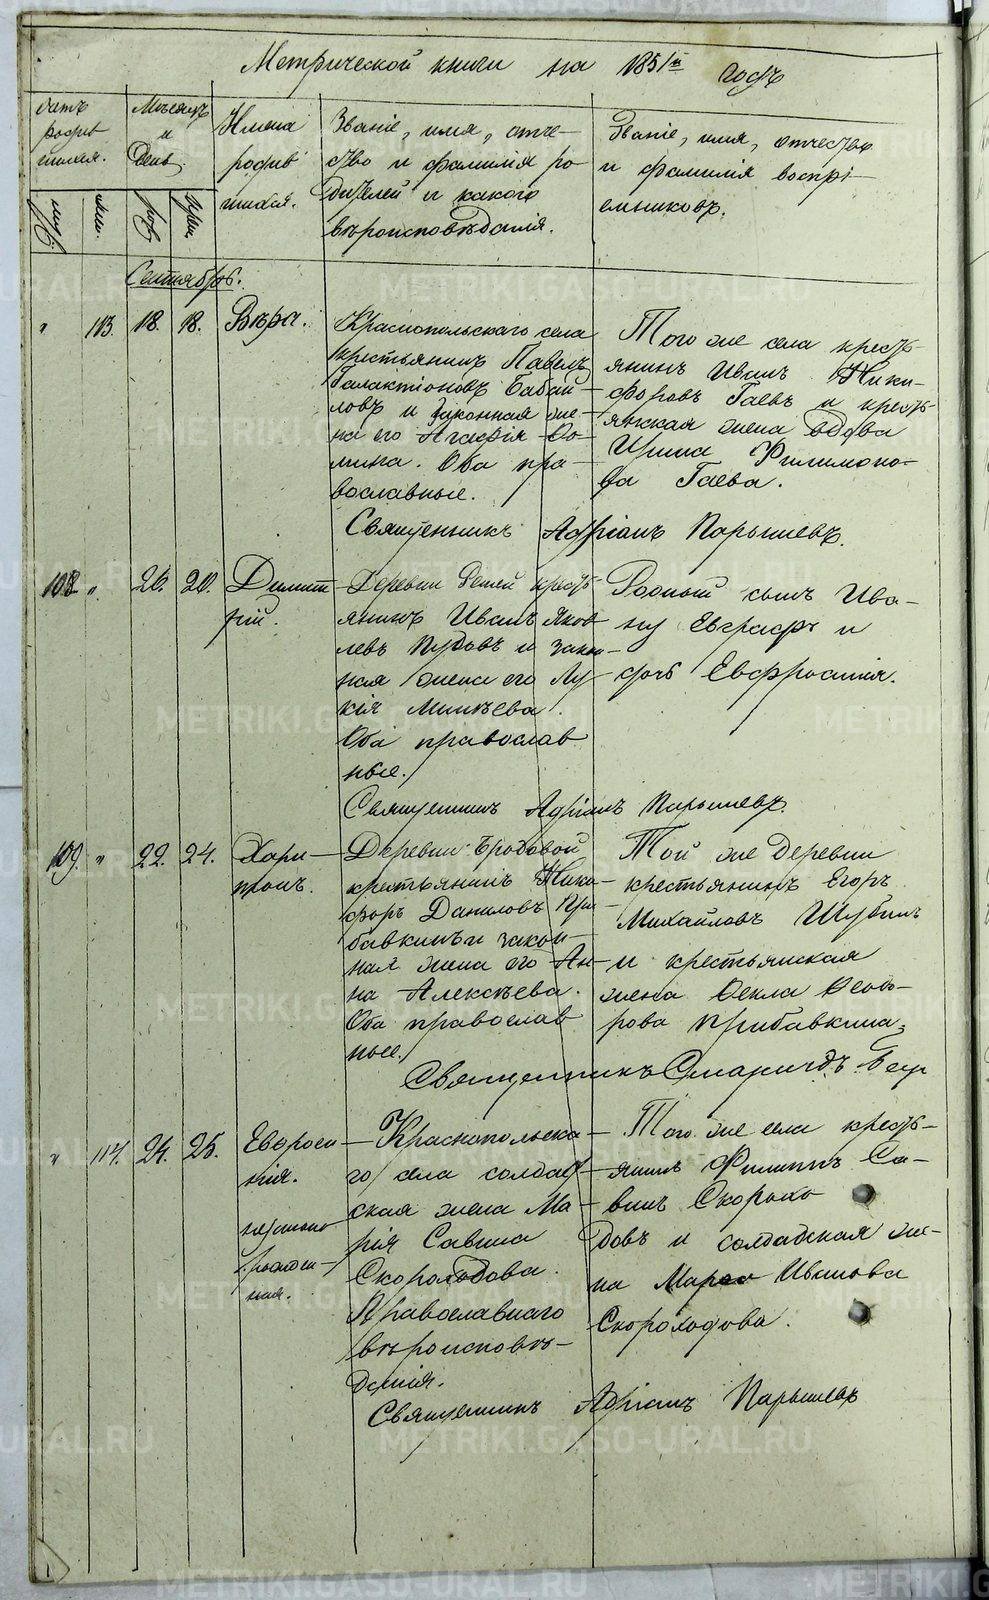 Метрической книги на 1851й годъ
Счетъ родившихся.
муж. жен.
Мѣсяцъ и день
рож. крещ.
Имена родившихся.
Званіе, имя, отчество и фамилія родителей и какого вѣроисповѣданія.
Званіе, имя, отчество и фамилія воспріемниковъ.
Сентябрь.
" 113. 18. 18. Вѣра.
Краснопольскаго села
крестьянинъ Павелъ
Галактіоновъ Бабай-
ловъ и законная же-
на его Агафія Ѳо-
мина. Оба пра-
вославные.
Того же села кресть-
янинъ Иванъ Ники-
форовъ Гаевъ и кресть-
янская жена вдова
Ирина Филимоно-
ва Гаева.
Священникъ Адріанъ Парышевъ.
108 " 20. 20. Димит-
рій.
Деревни кресть-
янинъ Иванъ Яков-
левъ Пудовъ и закон-
ная жена его Лу-
кія
Оба православ-
ные.
Родной сынъ Ива-
ну Евграфъ и
дочь Евфросинія.
Священникъ Адріанъ Парышевъ
109. " 22. 24. Хари-
тонъ.
Деревни Бродовой
крестьянинъ Ники-
форъ Даниловъ При-
бавкинъ и закон-
ная жена его Ан-
на Алексѣева.
Оба православ-
ные.
Той же деревни
крестьянинъ Егоръ
Михайловъ Шубинъ
и крестьянская
жена Ѳекла Ѳедо-
рова Прибавкина.
Священникъ Смарагдъ
" 114. 24. 25. Евфроси-
нія.
незаконно-
рожден-
ная.
Краснопольска-
го села солдат-
ская жена Ма-
рія Савина
Скороходова.
Православнаго
вѣроисповѣ-
данія.
Того же села кресть-
янинъ Филиппъ Са-
винъ Скорохо-
довъ и солдатская же-
на Иванова
Скороходова.
Священникъ Адріанъ Парышевъ
METRIKI.GASO-URAL.RU